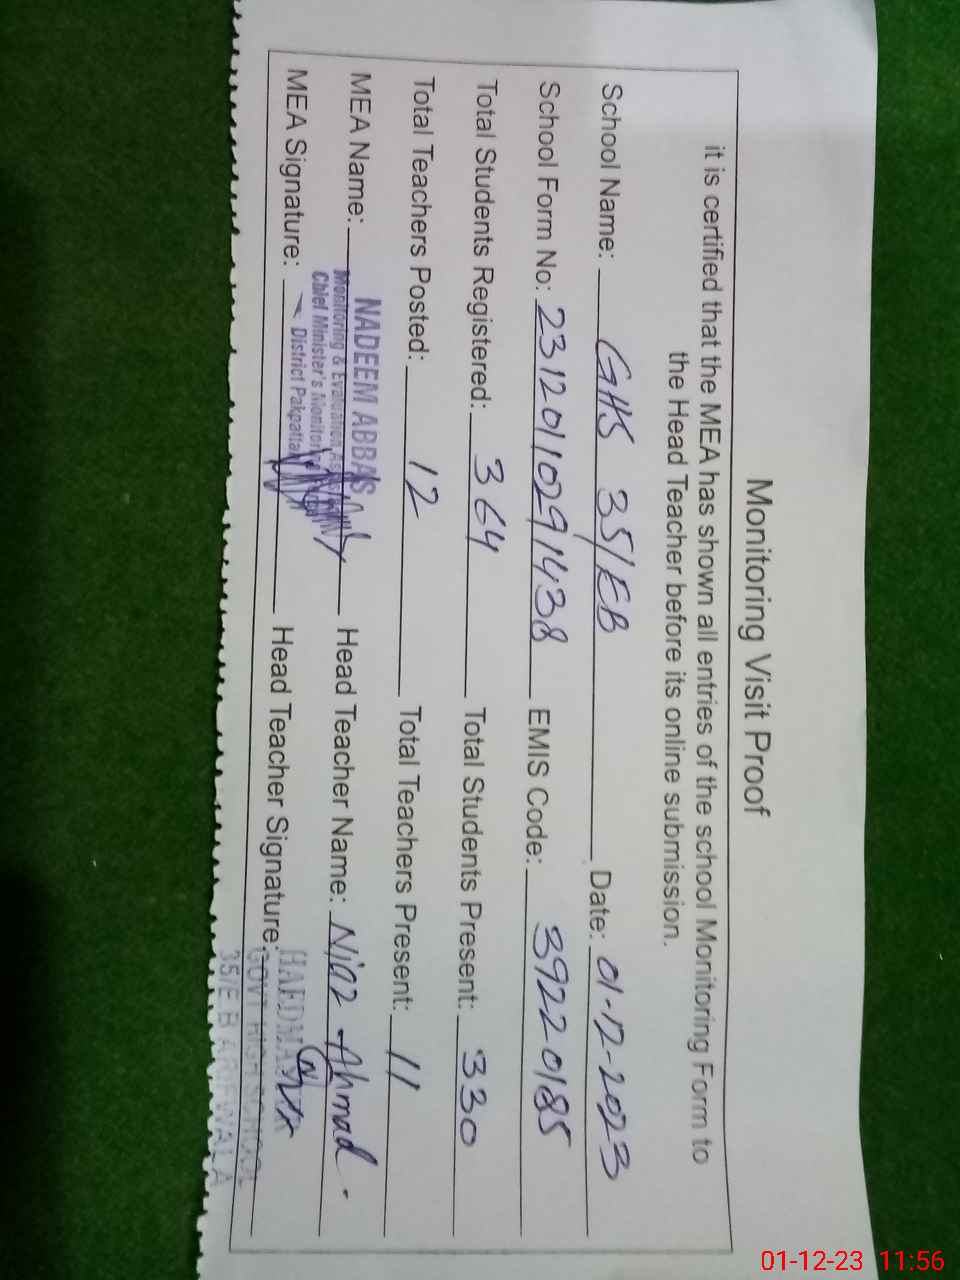 Monitoring Visit Proof
it is certified that the MEA has shown all entries of the school Monitoring Form to
the Head Teacher before its online submission.
School Name: GHS 35/EB Date: 01-12-2023
School Form No: 23120110291438 EMIS Code: 39220185
Total Students Registered: 364 Total Students Present: 330
Total Teachers Posted: 12 Total Teachers Present: 11
MEA Name: NADEEM ABBAS Head Teacher Name: Niaz Ahmad.
Monitoring & Evaluation
Chief Minister's Monitoring
District Pakpattan
MEA Signature: Head Teacher Signature:
GOVT HIGH SCHOOL
35/E B ARIFWALA
01-12-23 11:56